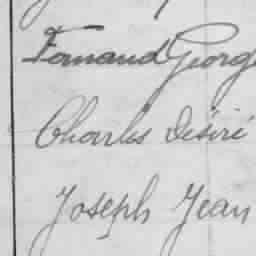 Fernand Georg
Charles Désiré
Joseph Jean